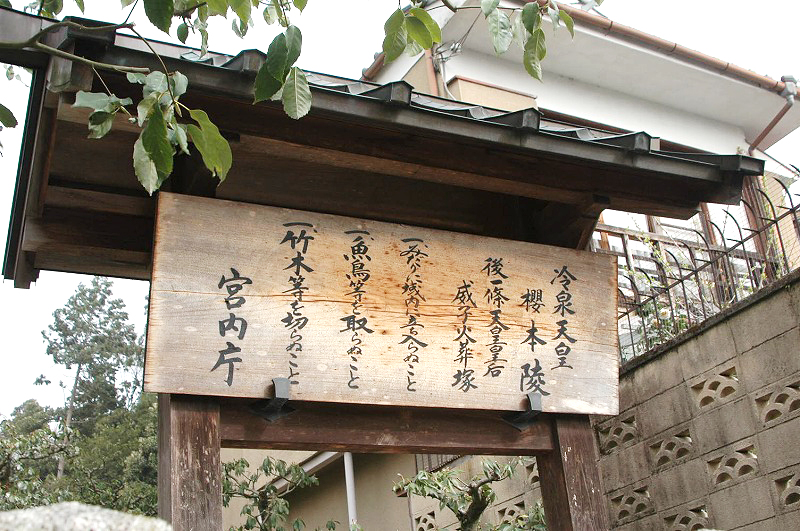 冷泉天皇
櫻本陵
後一條天皇皇后
威子火葬塚
一、みだりに域内に立ち入らぬこと
一、魚鳥等を取らぬこと
一、竹木等を切らぬこと
宮内庁